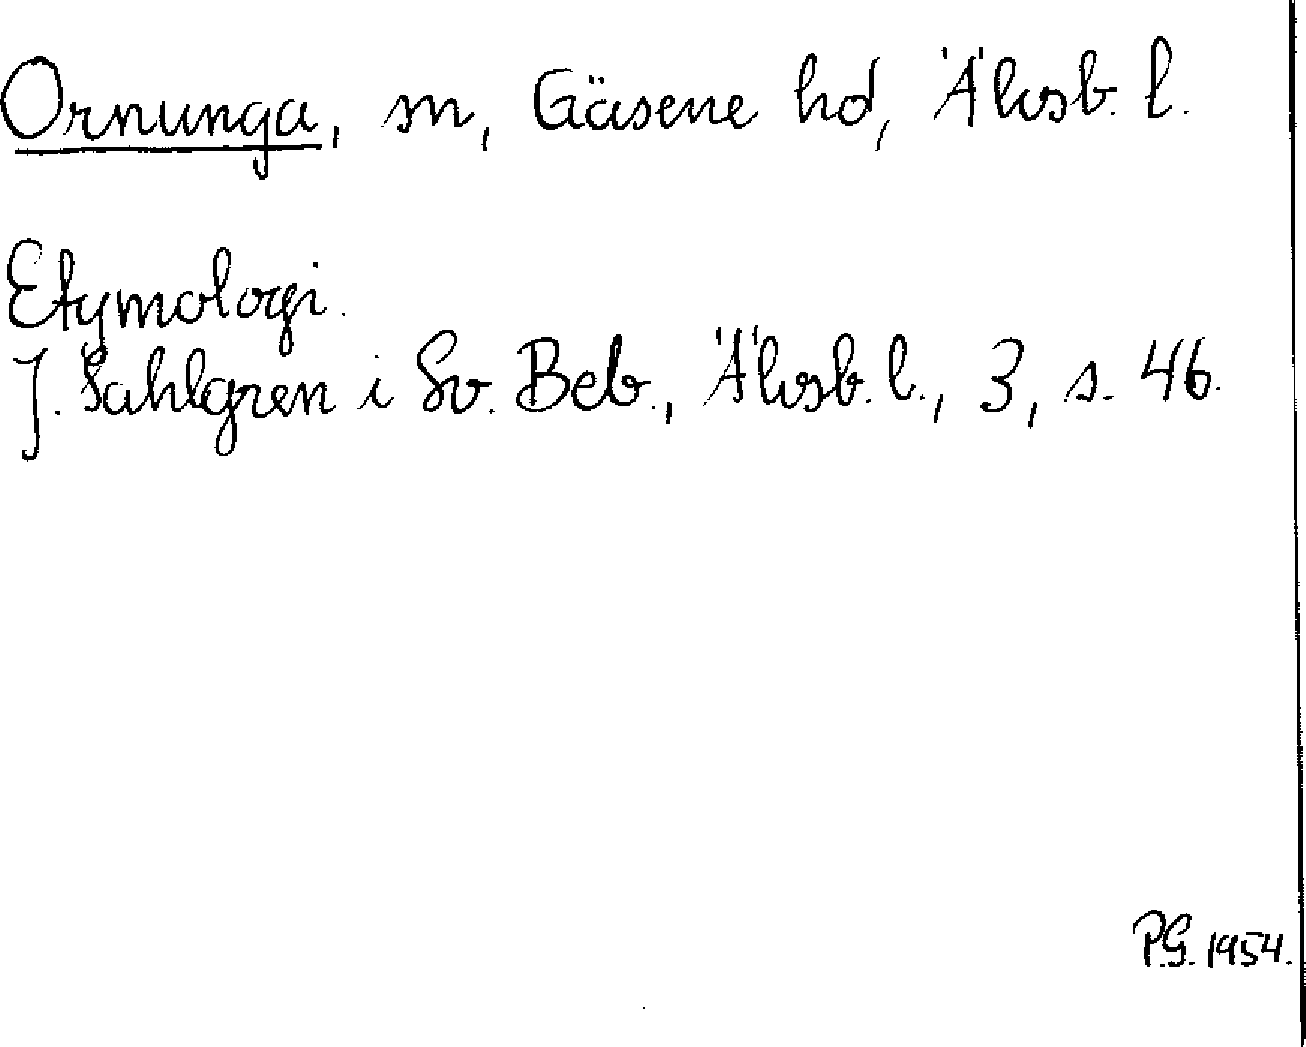 Ornunga, sn, Gäsene hd, Älvsb. l.
Etymologi.
J. Sahlgren i Sv. Beb., Älvsb. l., 3, s. 46.
P.G. 1954.